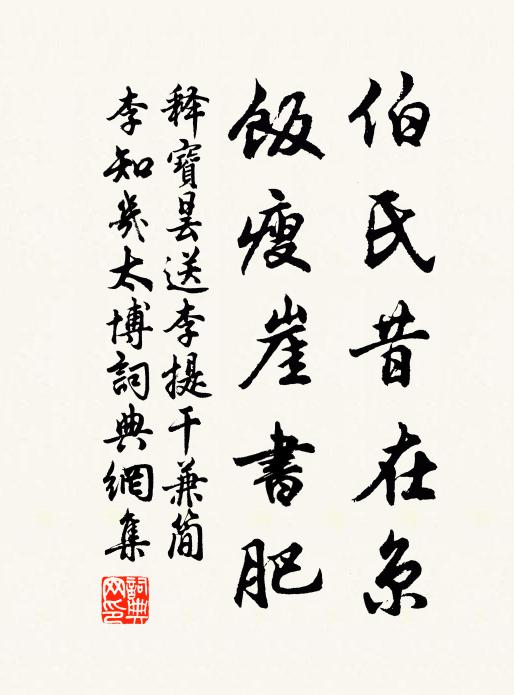 伯氏昔在京
飯瘦崖書肥
釋寶昙送李提干兼簡
李知幾太博詞典網集
詞典網印